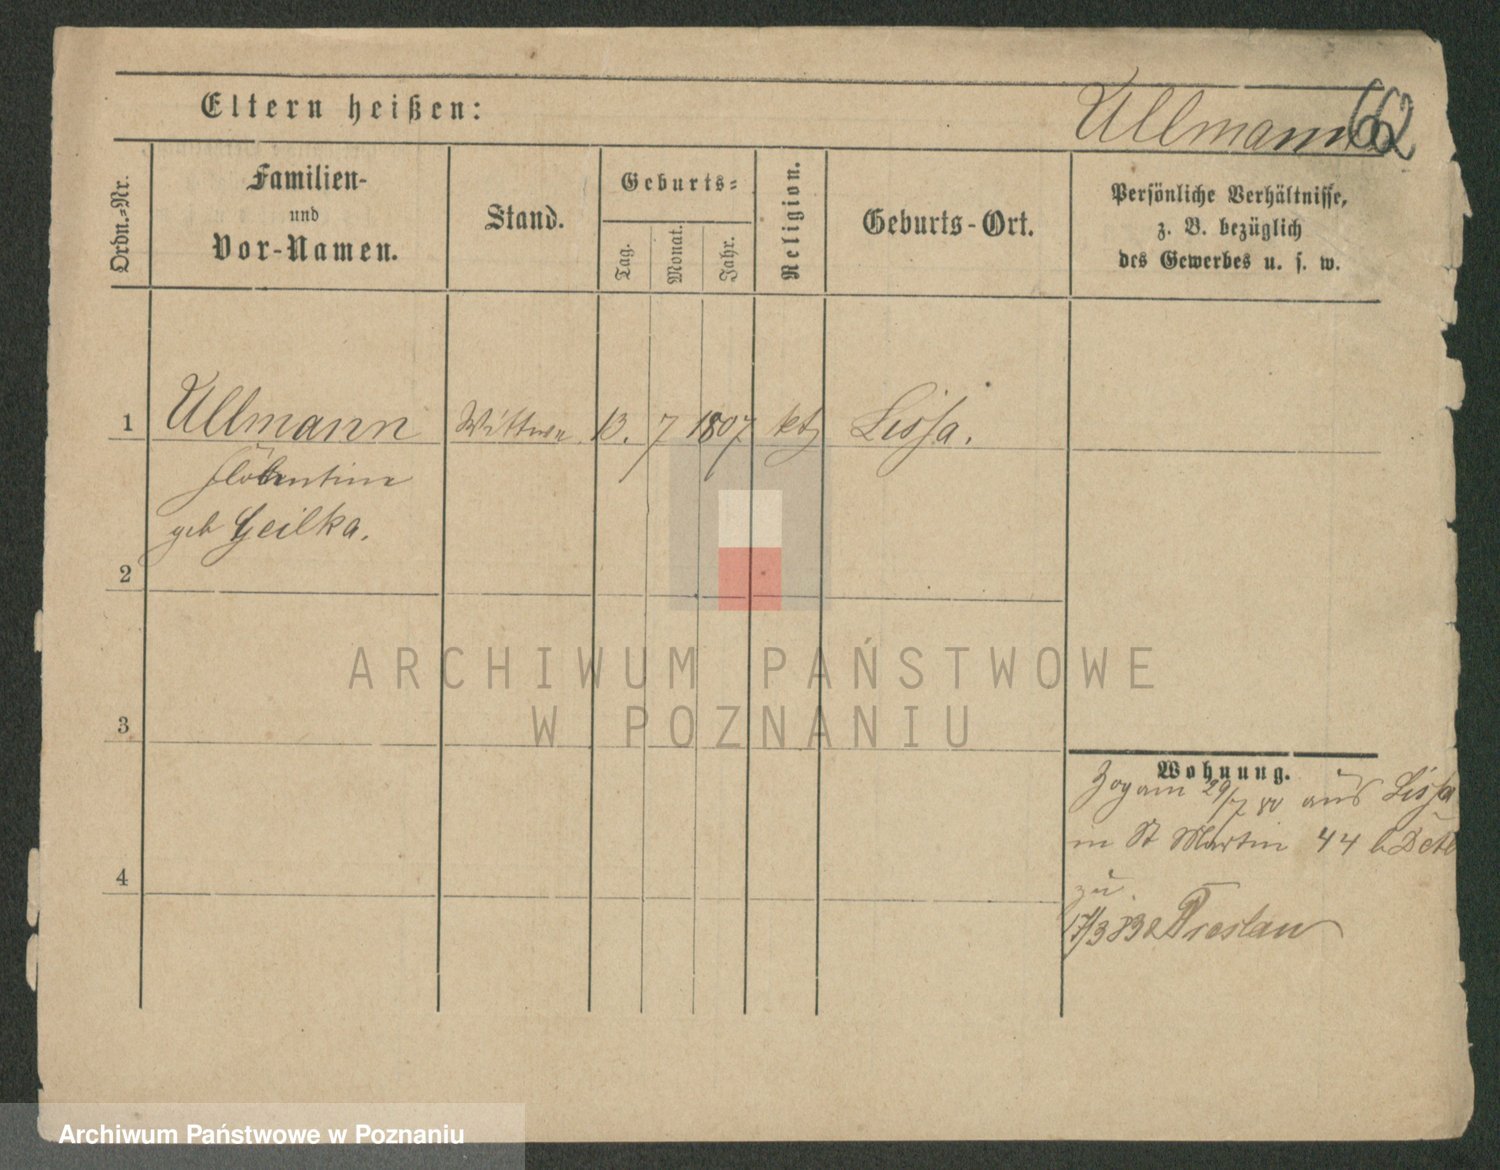 Eltern heißen:
Ullmann 662
Ordn.-Nr.
Familien-
und
Vor-Namen.
Stand.
Geburts-
Tag.
Monat.
Jahr.
Religion.
Geburts-Ort.
Persönliche Verhältnisse,
z. B. bezüglich
des Gewerbes u. s. w.
1 Ullmann Wittwe 13. 7 1807 kth Lissa.
Florentine
geb Geilka.
2
ARCHIWUM PAŃSTWOWE
W POZNANIU
3
Wohnung.
Zog am 29/7 80 aus Lissa
in St Martin 44 b
zu
17/3 83
4
Archiwum Państwowe w Poznaniu